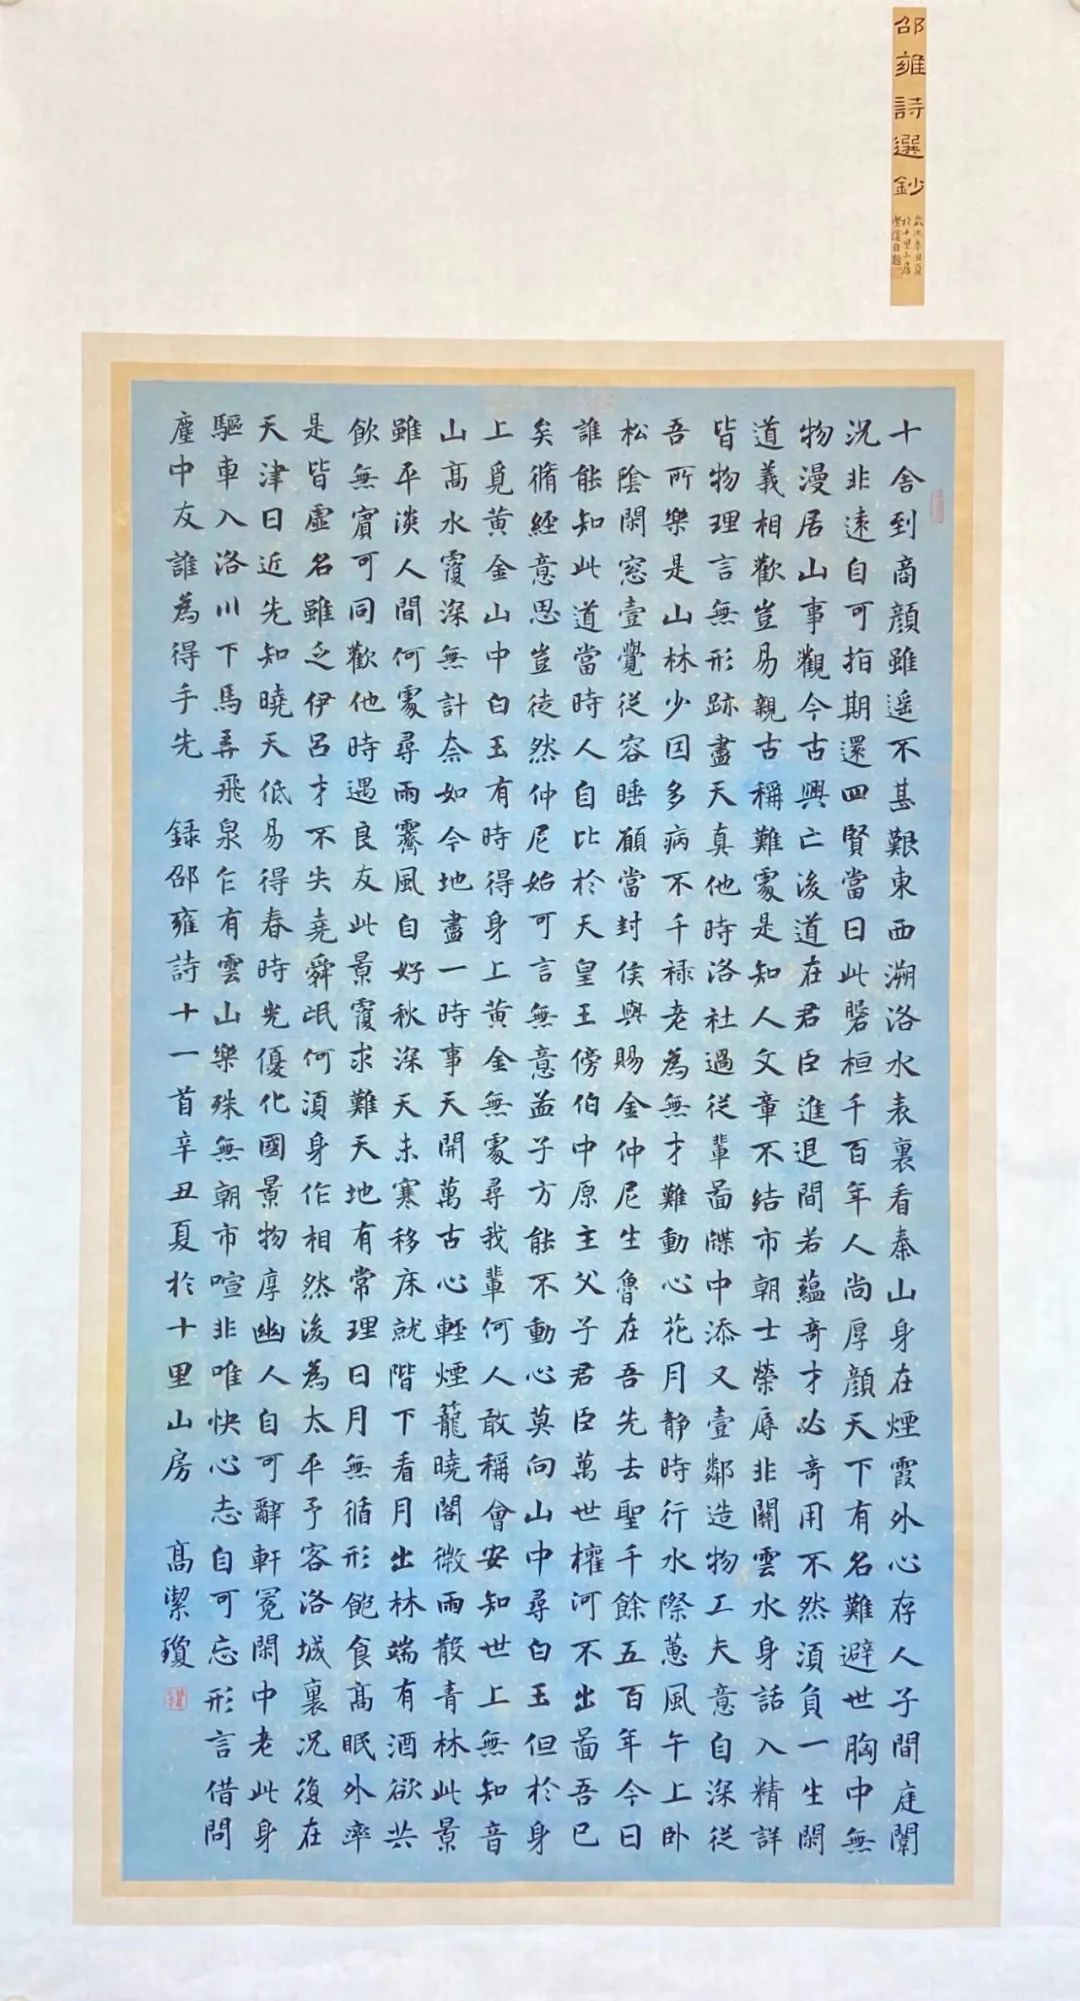 邵雍詩選鈔
歲次辛丑夏
於十里山房
潔瓊自題
十舍到商顔雖遥不甚艱東西溯洛水表裏看秦山身在煙霞外心存人子間庭闈
況非遠自可指期還四賢當日此磐桓千百年人尚厚顔天下有名難避世胸中無
物漫居山事觀今古興亡後道在君臣進退間若蘊奇才必奇用不然湏負一生閑
道義相歡豈易親古稱難處是知人文章不結市朝士榮辱非關雲水身話入精詳
皆物理言無形跡盡天真他時洛社過從輩圖牒中添又壹鄰造物工夫意自深從
吾所樂是山林少因多病不千禄老為無才難動心花月静時行水際蕙風午上卧
松陰閑窓壹覺從容睡願當封侯與賜金仲尼生魯在吾先去聖千餘五百年今日
誰能知此道當時人自比於天皇王傍伯中原主父子君臣萬世權河不出圖吾已
矣脩經意思豈徒然仲尼始可言無意孟子方能不動心莫向山中尋白玉但於身
上覓黄金山中白玉有時得身上黄金無處尋我輩何人敢稱會安知世上無知音
山高水復深無計奈如今地盡一時事天開萬古心輕煙籠曉閣微雨散青林此景
雖平淡人間何處尋雨霽風自好秋深天未寒移床就階下看月出林端有酒欲共
飲無賓可同歡他時遇良友此景復求難天地有常理日月無循形飽食高眠外率
是皆虚名雖乏伊呂才不失堯舜氓何湏身作相然後為太平予客洛城裏況復在
天津日近先知曉天低易得春時光優化國景物厚幽人自可辭軒冕閑中老此身
驅車入洛川下馬弄飛泉乍有雲山樂殊無朝市喧非唯快心志自可忘形言借問
塵中友誰為得手先 録邵雍詩十一首辛丑夏於十里山房 高潔瓊